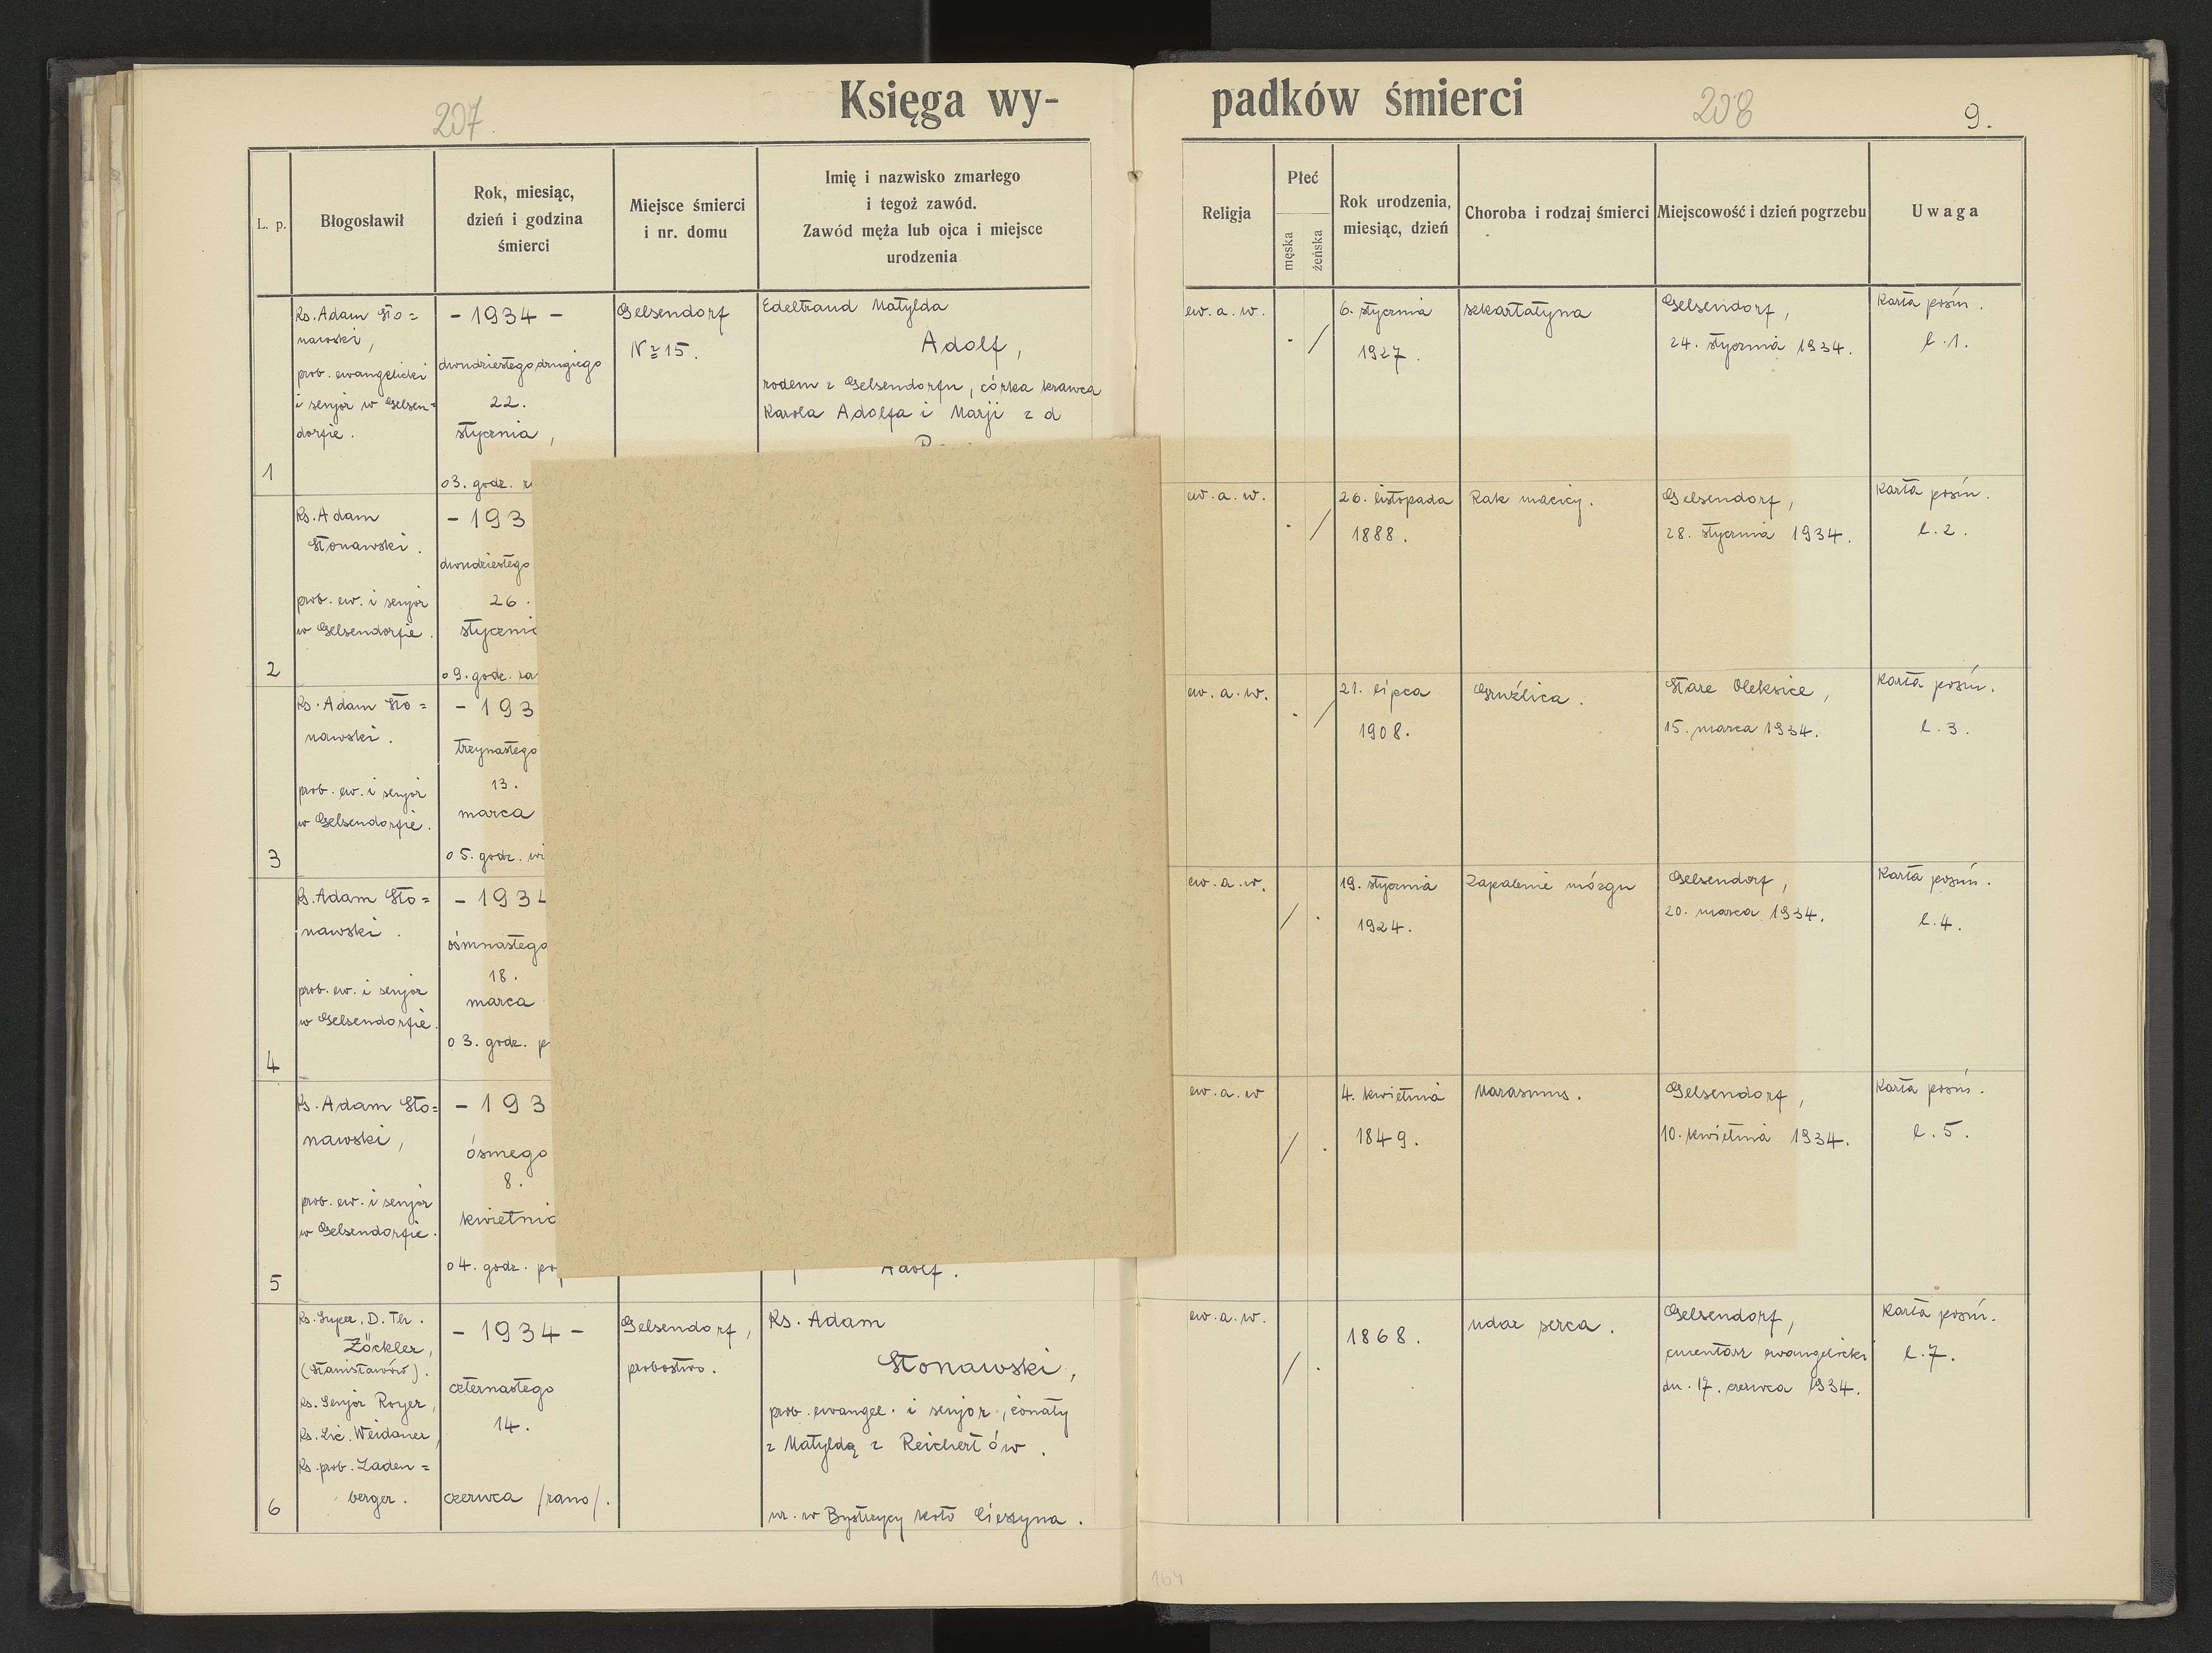 207.
Księga wy-
padków śmierci
208
9.
L. p.
Błogosławił
Rok, miesiąc,
dzień i godzina
śmierci
Miejsce śmierci
i nr. domu
Imię i nazwisko zmarłego
i tegoż zawód.
Zawód męża lub ojca i miejsce
urodzenia
Religja
Płeć
męska
żeńska
Rok urodzenia,
miesiąc, dzień
Choroba i rodzaj śmierci
Miejscowość i dzień pogrzebu
Uwaga
1
Ks. Adam Sto=
nawski,
prob. ewangelicki
i senjor w Gelsen=
dorfie.
- 1934 -
dwudziestegodrugiego
22.
stycznia,
o 3. godz.
Gelsendorf
№ 15.
Edeltraud Matylda
Adolf,
rodem z Gelsendorfu, córka krawca
Karola Adolfa i Marji z d
ew. a. w.
. /
6. stycznia
1927.
szkarlatyna
Gelsendorf,
24. stycznia 1934.
Karta pośm.
l. 1.
2
Ks. Adam
Stonawski.
prob. ew. i senjor
w Gelsendorfie.
- 193
dwudziestego
26.
styczni
o 9. godz. ra
ew. a. w.
. /
26. listopada
1888.
Rak macicy.
Gelsendorf,
28. stycznia 1934.
Karta pośm.
l. 2.
3
Ks. Adam Sto=
nawski.
prob. ew. i senjor
w Gelsendorfie.
- 193
trzynastego
13.
marca
o 5. godz. wi
ew. a. w.
. /
21. lipca
1908.
Gruźlica.
Stare Oleksice,
15. marca 1934.
Karta pośm.
l. 3.
4
Ks. Adam Sto=
nawski.
prob. ew. i senjor
w Gelsendorfie.
- 1934
ósmnastego
18.
marca
o 3. godz. p
ew. a. w.
/ .
19. stycznia
1924.
Zapalenie mózgu
Gelsendorf,
20. marca 1934.
Karta pośm.
l. 4.
5
Ks. Adam Sto=
nawski,
prob. ew. i senjor
w Gelsendorfie.
- 193
ósmego
8.
kwietnia
o 4. godz. po
Adolf.
ew. a. w
/ .
4. kwietnia
1849.
Marasmus.
Gelsendorf,
10. kwietnia 1934.
Karta pośm.
l. 5.
6
Ks. Super. D. Th.
Zöckler,
(Stanisławów).
Ks. Senjor Royer,
Ks. Lic. Weidauer,
Ks. prob. Laden=
berger.
- 1934 -
czternastego
14.
czerwca /rano/.
Gelsendorf,
probostwo.
Ks. Adam
Stonawski,
prob. ewangel. i senjor, żonaty
z Matyldą z Reichertów.
ur. w Bystrzycy koło Cieszyna.
ew. a. w.
/ .
1868.
udar serca.
Gelsendorf,
cmentarz ewangelicki
dn. 17. czerwca 1934.
Karta pośm.
l. 7.
164